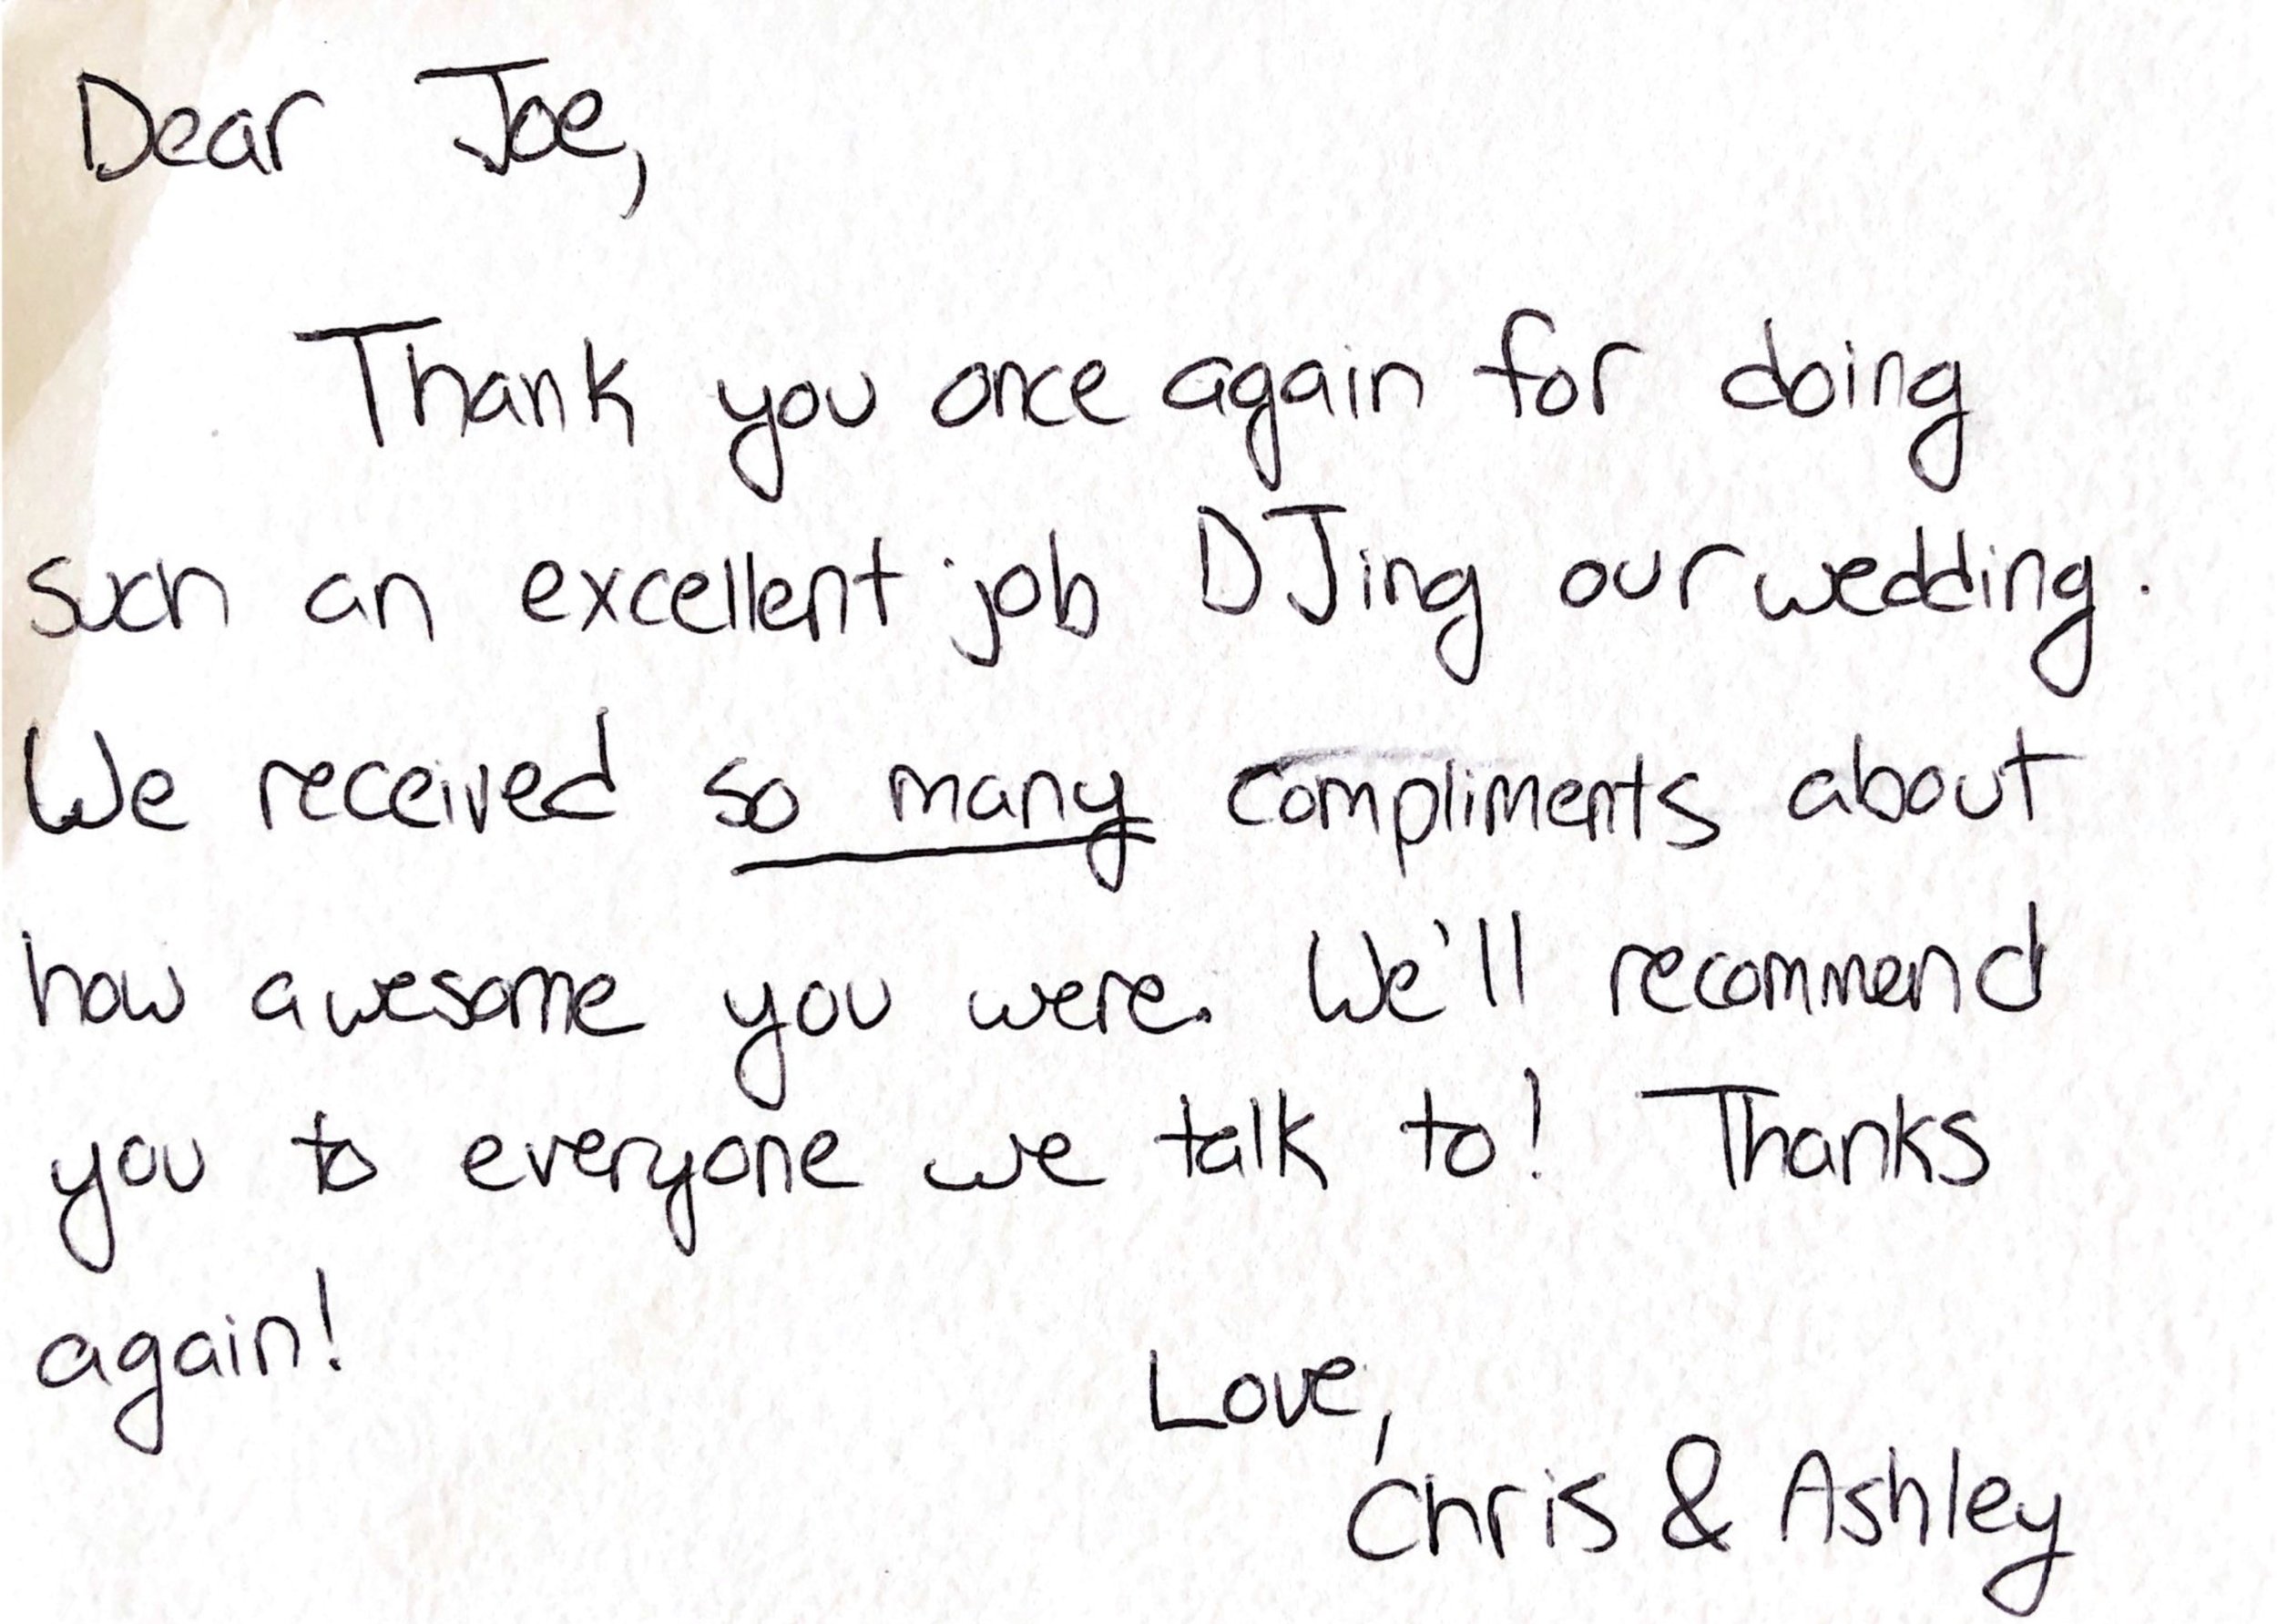 Dear Joe,
Thank you once again for doing
such an excellent job DJing our wedding.
We received so many compliments about
how awesome you were. We'll recommend
you to everyone we talk to! Thanks
again!
Love,
Chris & Ashley